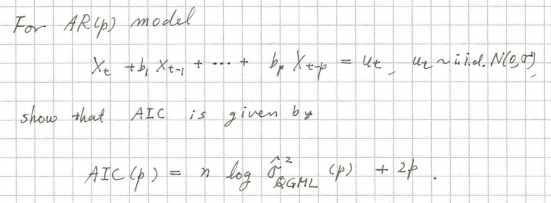 For AR(p) model
X_t + b_1 X_{t-1} + ... + b_p X_{t-p} = u_t, u_t ~ i.i.d. N(0, σ²)
show that AIC is given by
AIC(p) = n log σ̂²_{QGML}(p) + 2p.